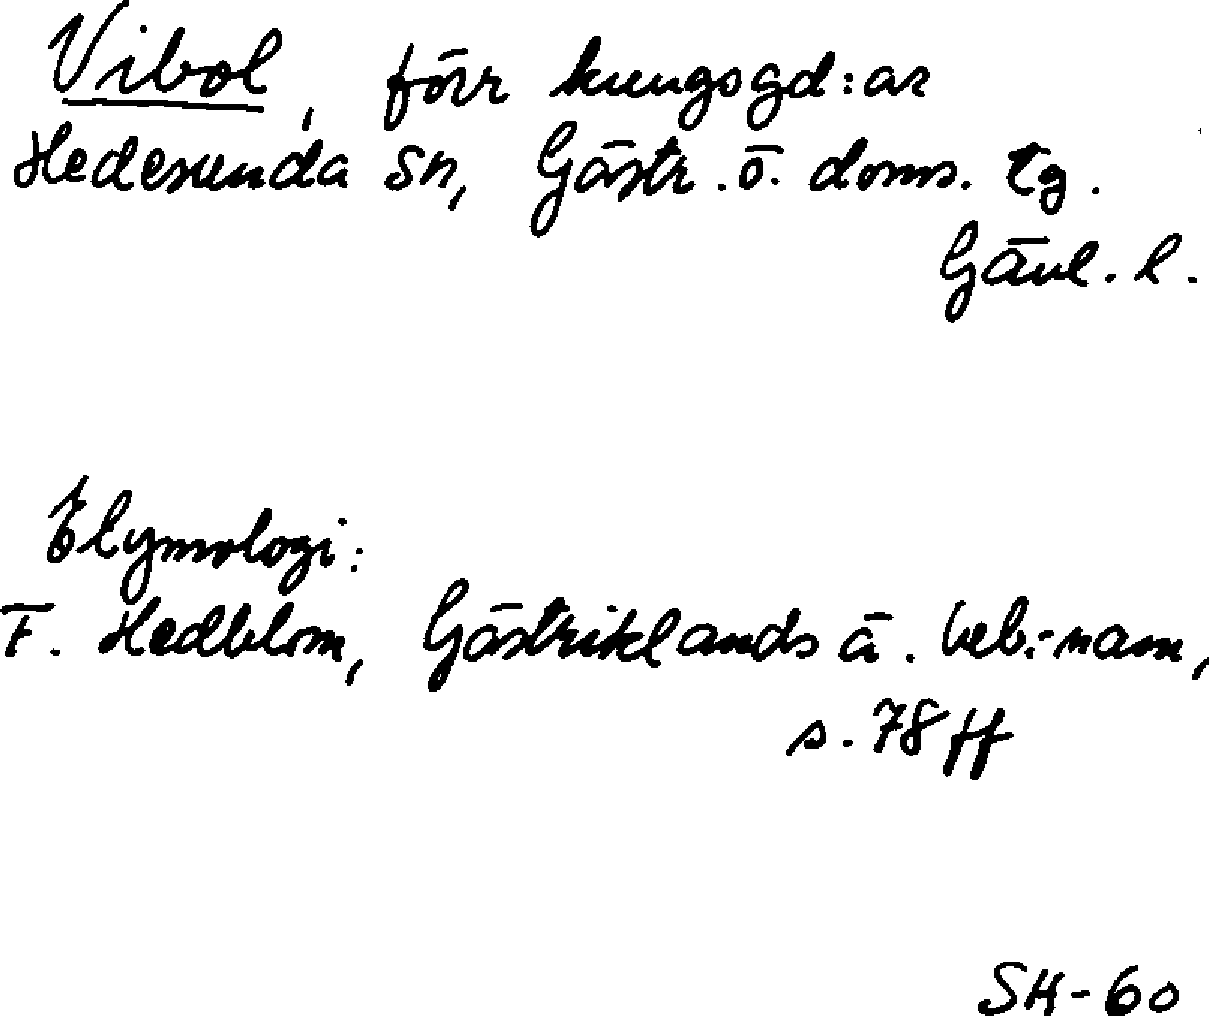 Vibol, förr kungsgd:ar
Hedesunda sn, Gästr. ö. doms. tg.
Gävl. l.
Etymologi:
F. Hedblom, Gästriklands ä. beb.-namn,
s. 78 ff
SH-60